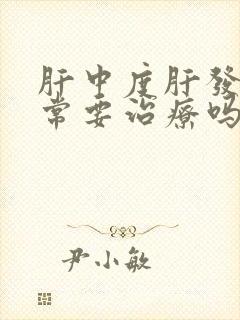 肝中度肝發
常要治療吗
尹小敏